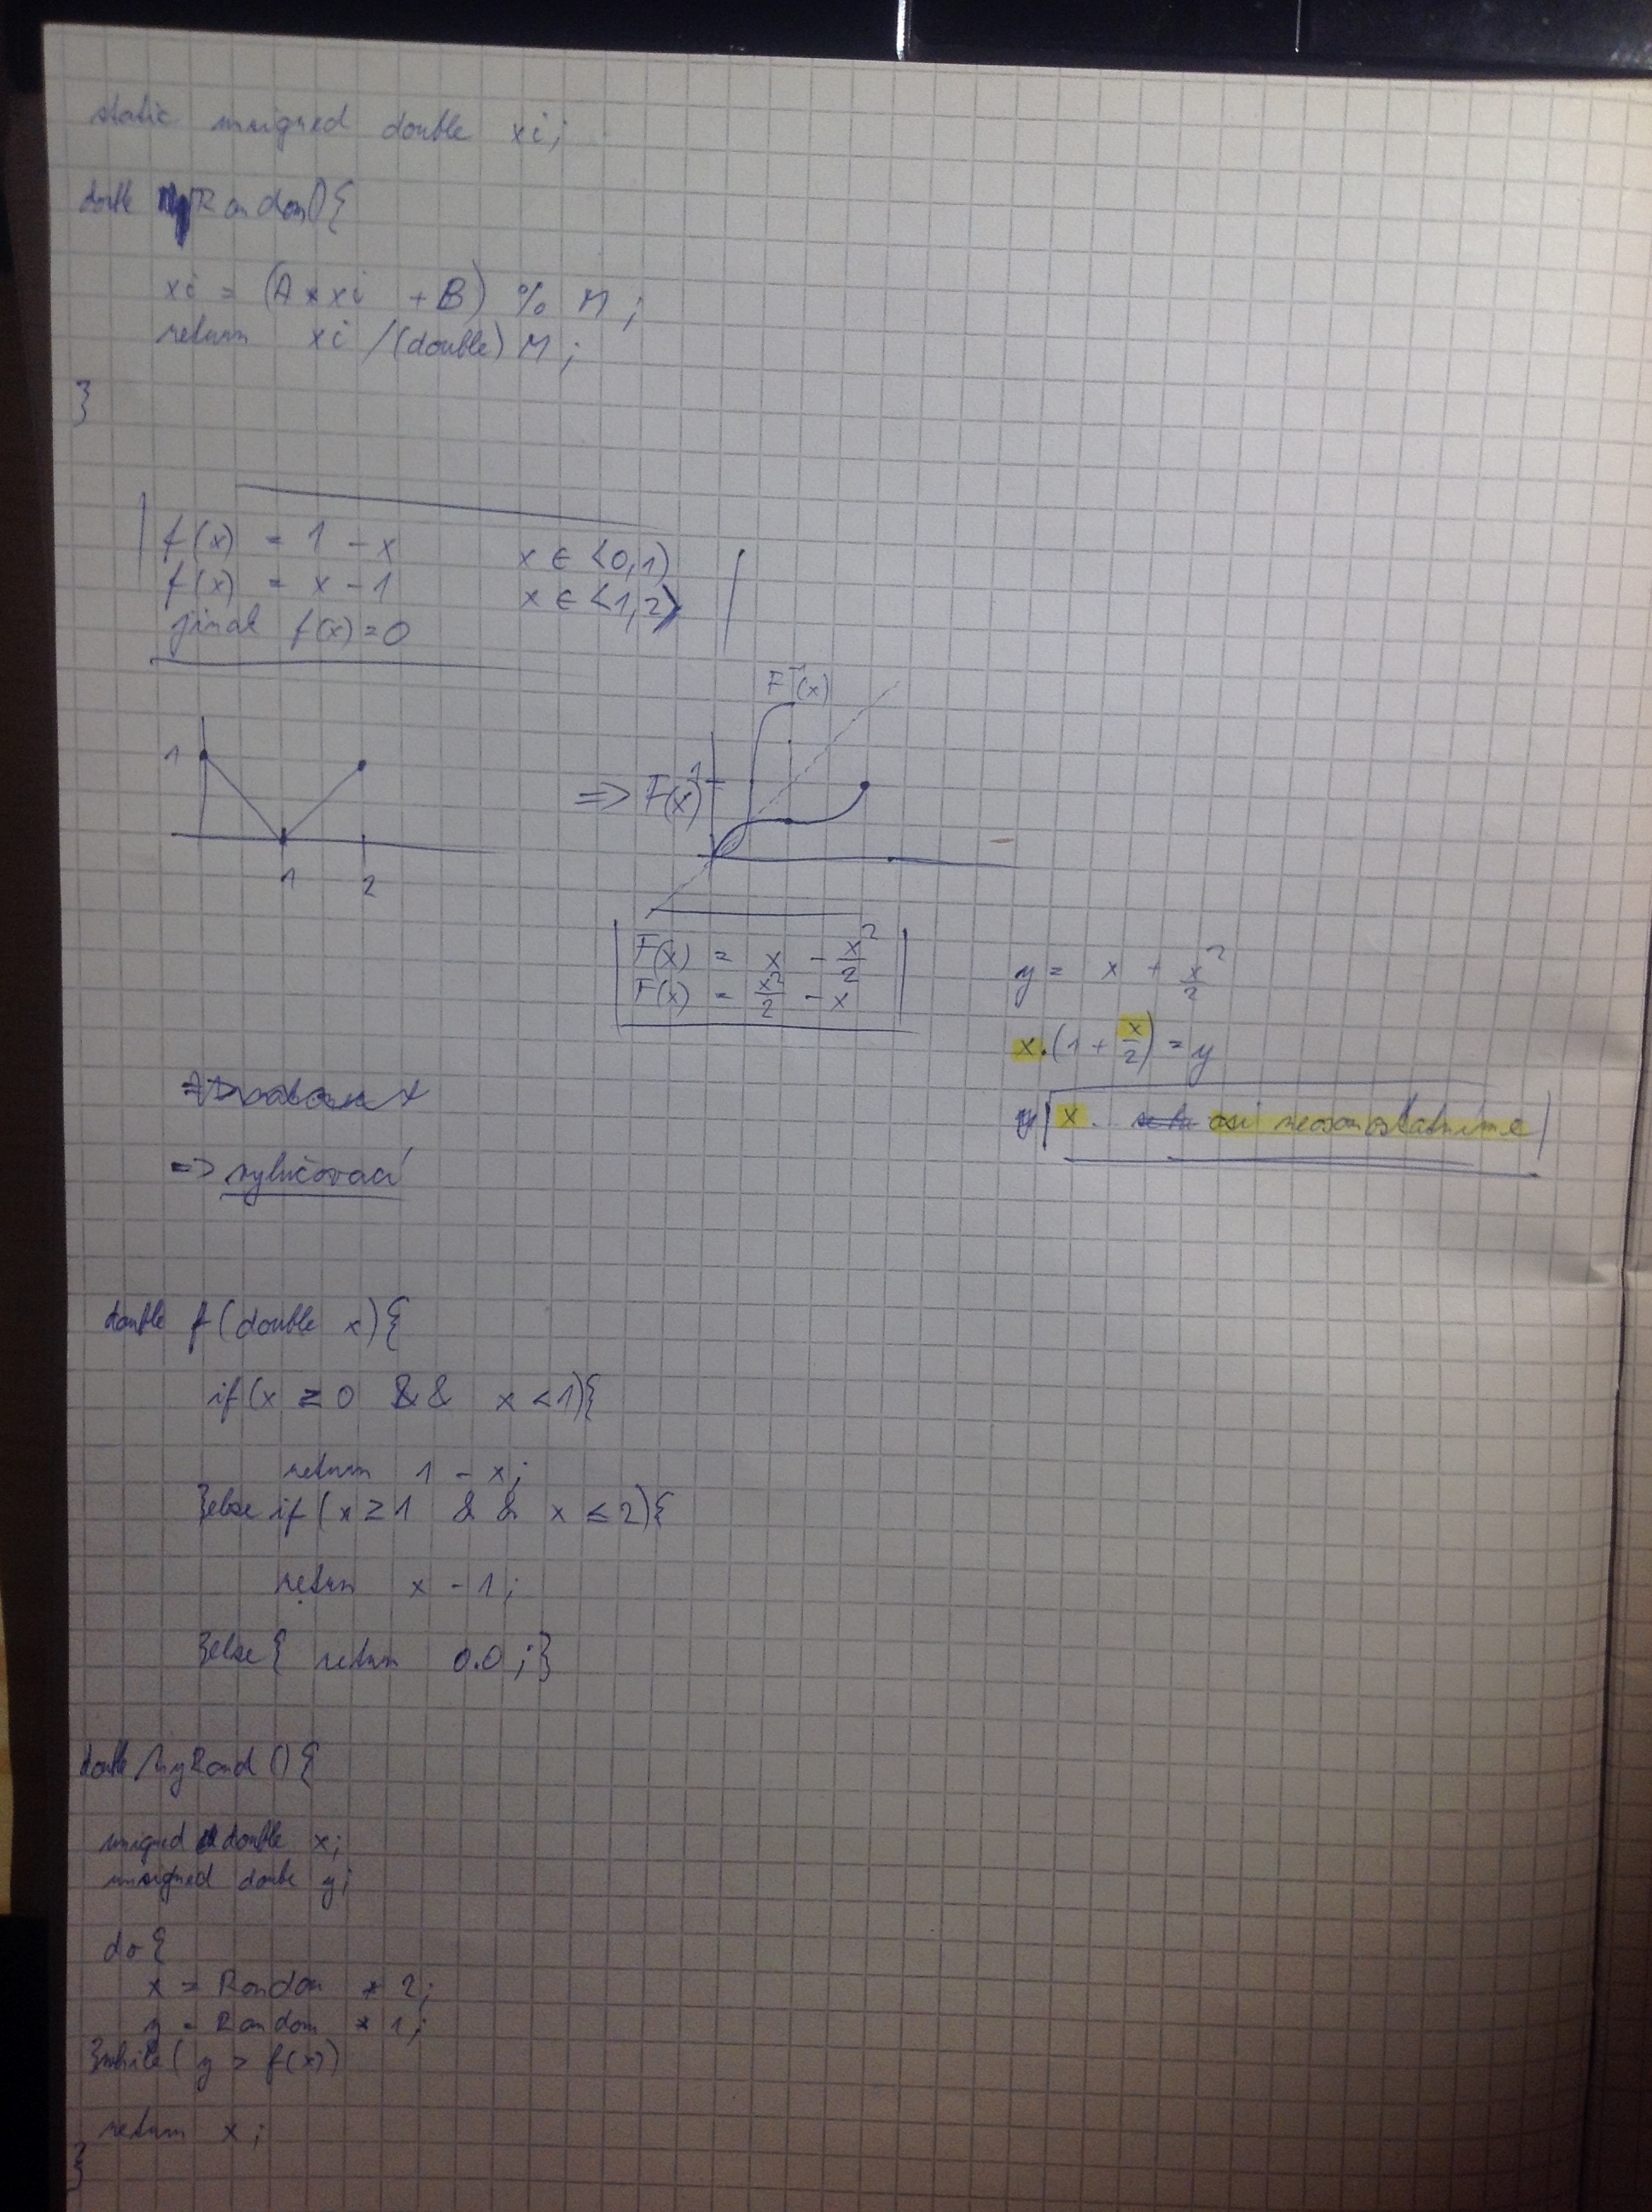 static unsigned double xi;
double Random(){
xi = (A * xi + B) % M;
return xi / (double) M;
}
f(x) = 1 - x x ∈ <0,1)
f(x) = x - 1 x ∈ <1,2>
jinak f(x) = 0
F⁻(x)
1
1 2
=> F(x) 1
F(x) = x - x²/2
F(x) = x²/2 - x
y = x + x²/2
x.(1 + x/2) = y
x. asi neosamostatníme
=> vylučovací
double f(double x){
if(x ≥ 0 && x < 1){
return 1 - x;
}else if(x ≥ 1 && x ≤ 2){
return x - 1;
}else{ return 0.0;}
double MyRand(){
unsigned double x;
unsigned double y;
do{
x = Random * 2;
y = Random * 1;
}while( y > f(x))
return x;
}